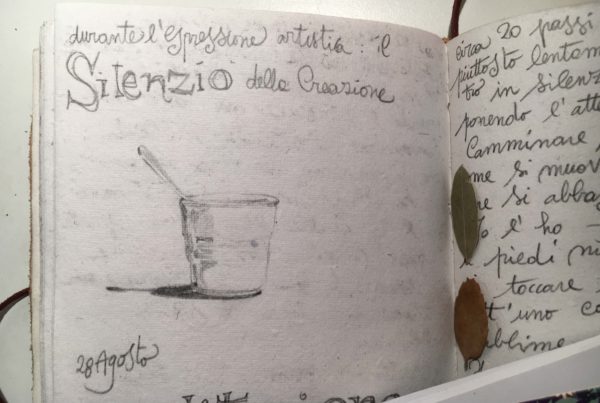 durante l'espressione artistia: il
Silenzio della Creazione
28 Agosto
circa 20 passi
piuttosto lentam
in silenz
ponendo l'atte
Camminare
me si muov
si abbas
l'ho
piedi
toccare
t'uno co
ublime